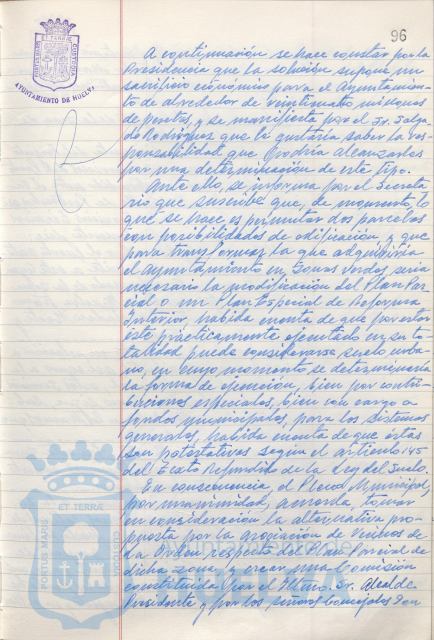 96
PORTUS MARIS ET TERRÆ CUSTODIA
AYUNTAMIENTO DE HUELVA
A continuación se hace constar por la
Presidencia que la solución supone un
sacrificio económico para el Ayuntamien-
to de alrededor de veinticuatro millones
de pesetas, y se manifiesta por el Sr. Salga-
do Rodríguez que le gustaría saber la res-
ponsabilidad que podría alcanzarles
por una determinación de este tipo.
Ante ello, se informa por el Secreta-
rio que suscribe que, de momento, lo
que se hace es permutar dos parcelas
con posibilidades de edificación, y que
para transformar la que adquiriría
el Ayuntamiento en zonas verdes sería
necesario la modificación del Plan Par-
cial o un Plan Especial de Reforma
Interior, habida cuenta de que por estar
éste prácticamente ejecutado en su to-
talidad puede considerarse suelo urba-
no, en cuyo momento se determinaría
la forma de ejecución, bien por contri-
buciones especiales, bien con cargo a
fondos municipales, para los sistemas
generales, habida cuenta de que éstas
son potestativas según el artículo 145
del Texto Refundido de la Ley del Suelo.
En consecuencia, el Pleno Municipal,
por unanimidad, acuerda, tomar
en consideración la alternativa pro-
puesta por la asociación de Vecinos de
La Orden respecto del Plan Parcial de
dicha zona, y crear una Comisión
constituida por el Iltmo. Sr. Alcalde
Presidente y por los señores Concejales Don
PORTUS MARIS ET TERRÆ CUSTODIA